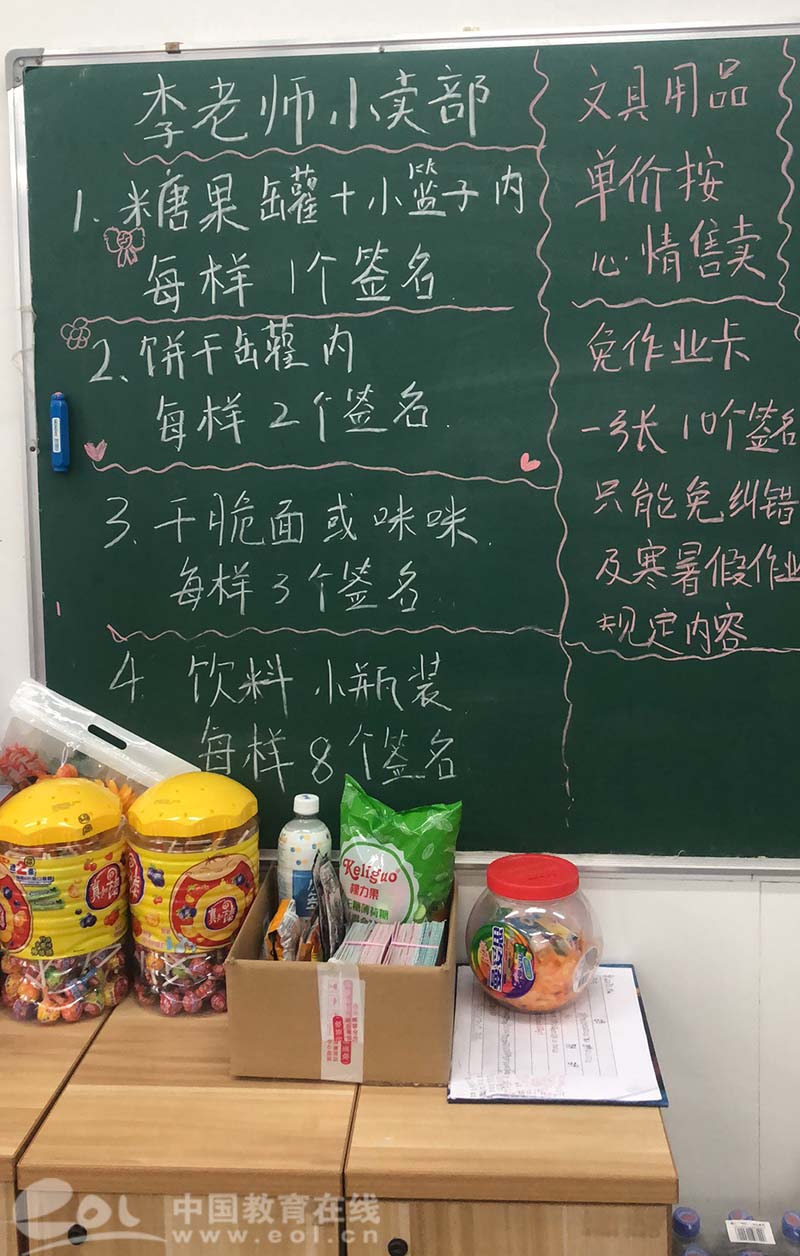 李老师小卖部
1. 糖果罐+小篮子内
每样 1个签名.
2、饼干罐内
每样2个签名.
3. 干脆面或咪咪.
每样3个签名.
4. 饮料 小瓶装.
每样8个签名
文具用品
单价按
心情售卖
免作业卡
一张10个签名
只能免纠错
及寒暑假作业
规定内容
Keliguo
eol 中国教育在线
www.eol.cn